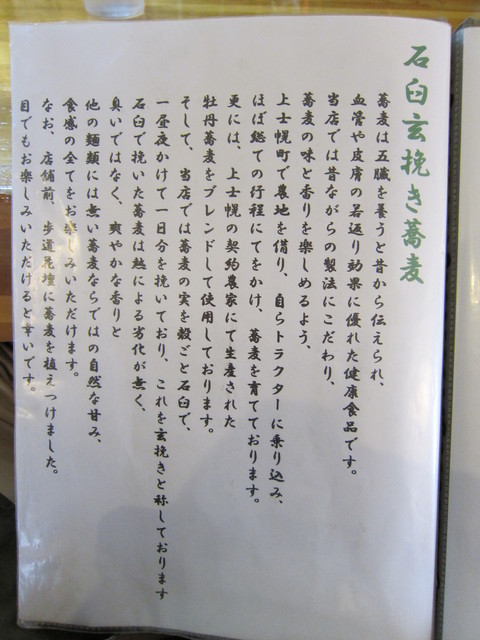 石臼玄挽き蕎麦
蕎麦は五臓を養うと昔から伝えられ、
血管や皮膚の若返り効果に優れた健康食品です。
当店では昔ながらの製法にこだわり、
蕎麦の味と香りを楽しめるよう、
上士幌町で農地を借り、自らトラクターに乗り込み、
ほぼ総ての行程にてをかけ、蕎麦を育てております。
更には、上士幌の契約農家にて生産された
牡丹蕎麦をブレンドして使用しております。
そして、当店では蕎麦の実を殻ごと石臼で、
一昼夜かけて一日分を挽いており、これを玄挽きと称しております
石臼で挽いた蕎麦は熱による劣化が無く、
臭いではなく、爽やかな香りと
他の麺類には無い蕎麦ならではの自然な甘み、
食感の全てをお楽しみいただけます。
なお、店舗前、歩道花壇に蕎麦を植えつけました。
目でもお楽しみいただけると幸いです。